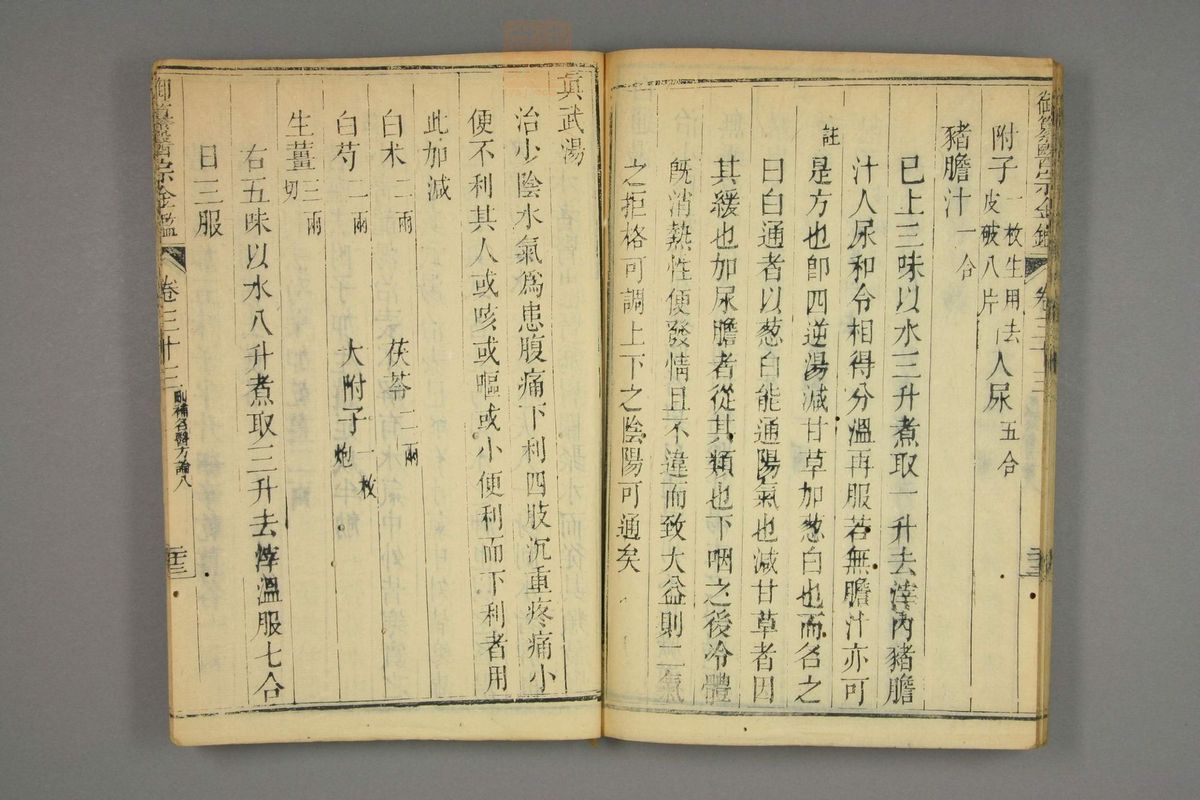 御纂醫宗金鑑 卷三十三
附子一枚生用去皮破八片 人尿五合
豬膽汁一合
已上三味以水三升煮取一升去滓內豬膽
汁人尿和令相得分溫再服若無膽汁亦可
註 是方也卽四逆湯減甘草加葱白也而名之
曰白通者以葱白能通陽氣也減甘草者因
其緩也加尿膽者從其類也下咽之後冷體
旣消熱性便發情且不違而致大益則二氣
之拒格可調上下之陰陽可通矣
眞武湯
治少陰水氣爲患腹痛下利四肢沉重疼痛小
便不利其人或咳或嘔或小便利而下利者用
此加減
白朮二兩 茯苓三兩
白芍三兩 大附子一枚炮
生薑三兩切
右五味以水八升煮取三升去滓溫服七合
日三服
御纂醫宗金鑑 卷三十三 刪補名醫方論八 二十三